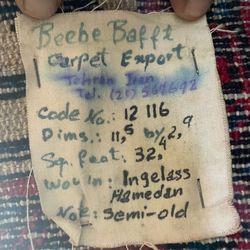 Beche Bafft
Carpet Export
Tehran Iran
Tel. (21) 564692
Code No.: 12 116
Dims.: 11,5 by 2,9
Sq. feet: 32,4
wov in: Ingelass
Hamedan
Note: Semi-old